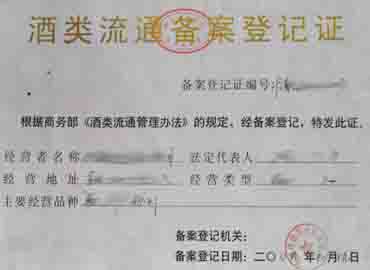 酒类流通备案登记证
备案登记证编号:
根据商务部《酒类流通管理办法》的规定，经备案登记，特发此证。
经营者名称 法定代表人
经营地址 经营类型
主要经营品种
备案登记机关:
备案登记日期: 二〇 年 月 日